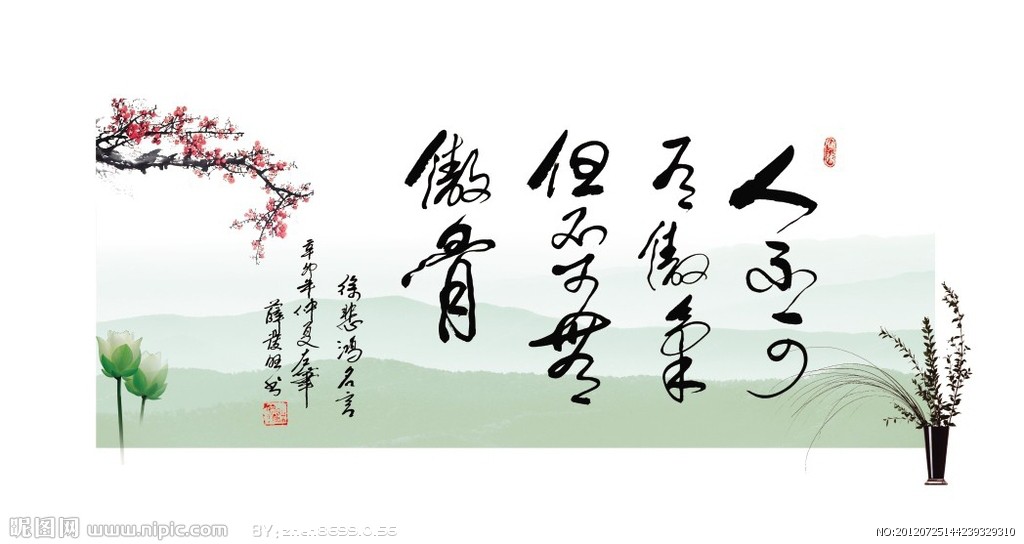 人不可
有傲气
但不可无
傲骨
徐悲鸿名言
辛卯年仲夏左笔
昵图网 www.nipic.com
NO:20120725144239329310